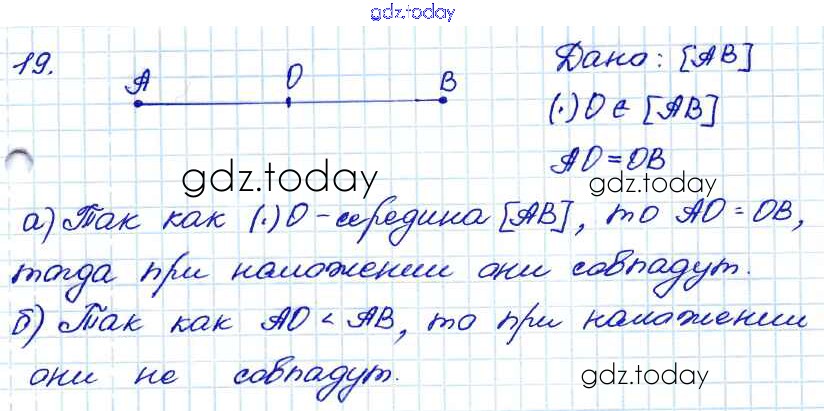 gdz.today
19.
A O B
Дано: [AB]
(·) O ∈ [AB]
AO = OB
gdz.today
gdz.today
а) Так как (·) O - середина [AB], то AO = OB,
тогда при наложении они совпадут.
б) Так как AO < AB, то при наложении
они не совпадут.
gdz.today